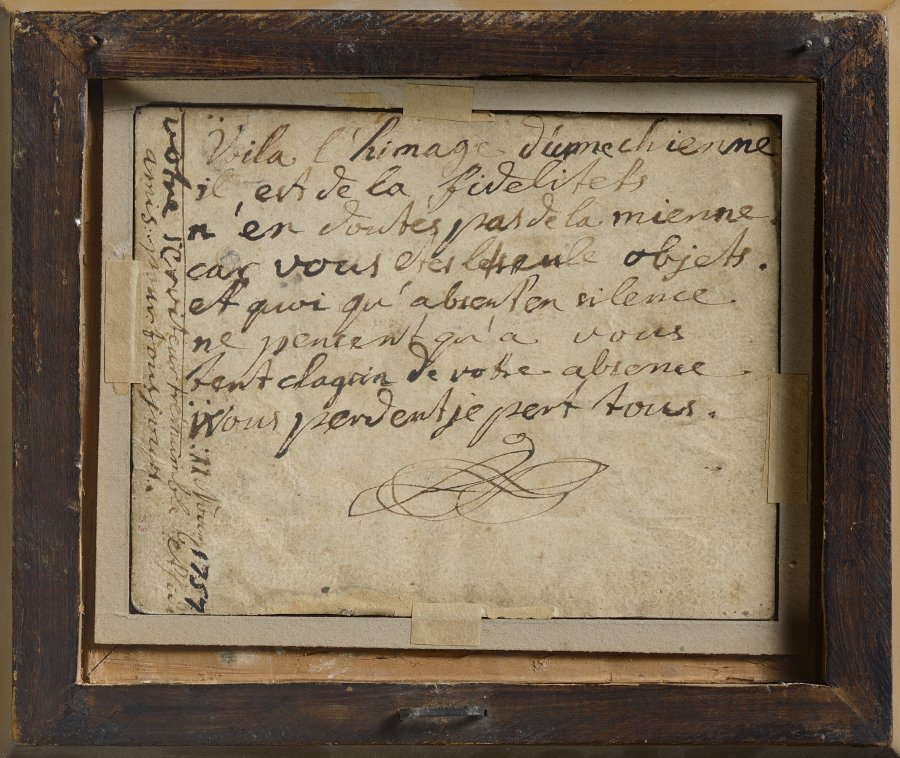 Voila l'himage d'unne chienne
il, est de la fidelitets
n'en doutés pas de la mienne.
car vous etés le seule objets.
et quoi qu'absent'en silence.
ne pencent qu'a vous
chagrin de votre absence.
Vous perdent je pert tous.
votre serviteur 1757
amis pour tousjours.